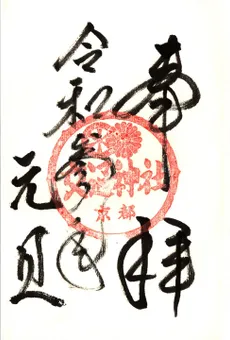 奉拝
令和参年
元旦
神社
京都